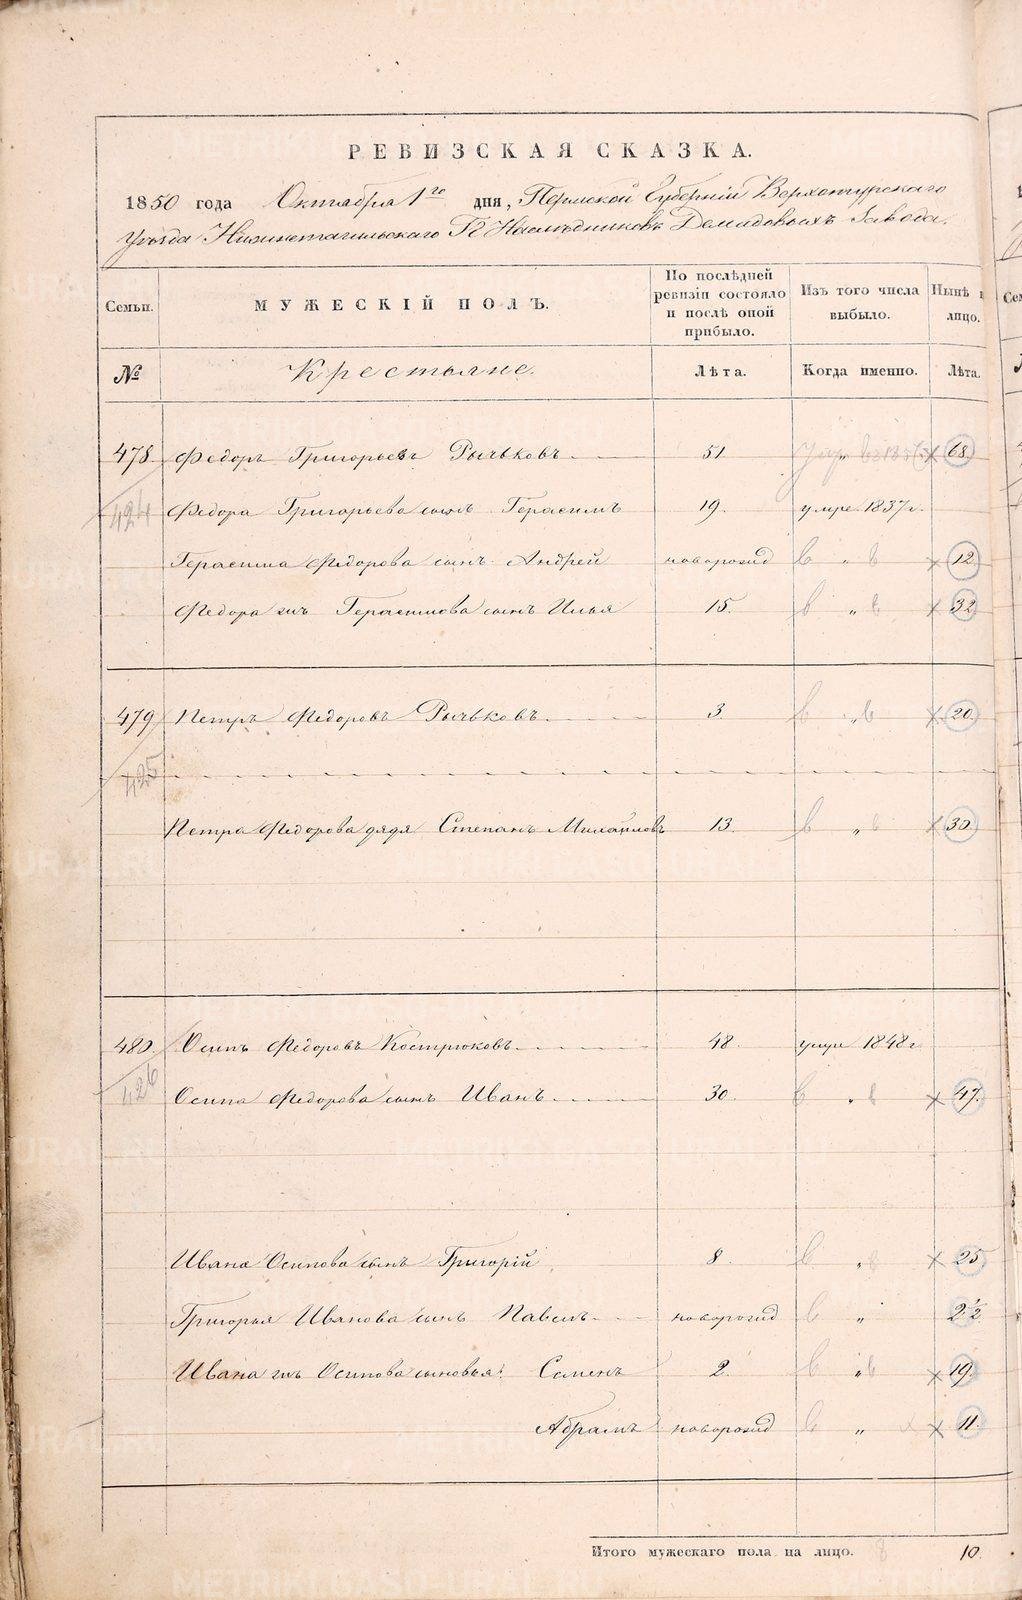 РЕВИЗСКАЯ СКАЗКА.
1850 года Октября 1го дня, Пермской Губерніи Верхотурскаго
Уѣзда Нижнетагильскаго Гг Наслѣдниковъ Демидовыхъ Завода.
Семьи. МУЖЕСКІЙ ПОЛЪ. По послѣдней ревизіи состояло и послѣ оной прибыло. Изъ того числа выбыло. Нынѣ лицо.
№ Крестьяне. Лѣта. Когда именно. Лѣта.
478 Федоръ Григорьевъ Рычьковъ 51 „ 68
424 Федора Григорьева сынъ Герасимъ 19. умре 1837 г.
Герасима Федорова сынъ Андрей новорожд „ 12
Федора жъ Герасимова сынъ Илья 15. „ 32
479 Петръ Федоровъ Рычьковъ 3 „ 20
425
Петра Федорова дядя Степанъ Михайловъ 13. „ 30
480. Осипъ Федоровъ Кострюковъ 48. умре 1848 г
426 Осипа Федорова сынъ Иванъ 30. „ 47.
Ивана Осипова сынъ Григорій 8. „ 25
Григорья Иванова сынъ Павелъ новорожд „ 2 1/2
Ивана жъ Осипова сыновья: Семенъ 2. „ 19.
Абрамъ новорожд „ 11.
Итого мужескаго пола на лицо. 10.
METRIKI.GASO-URAL.RU